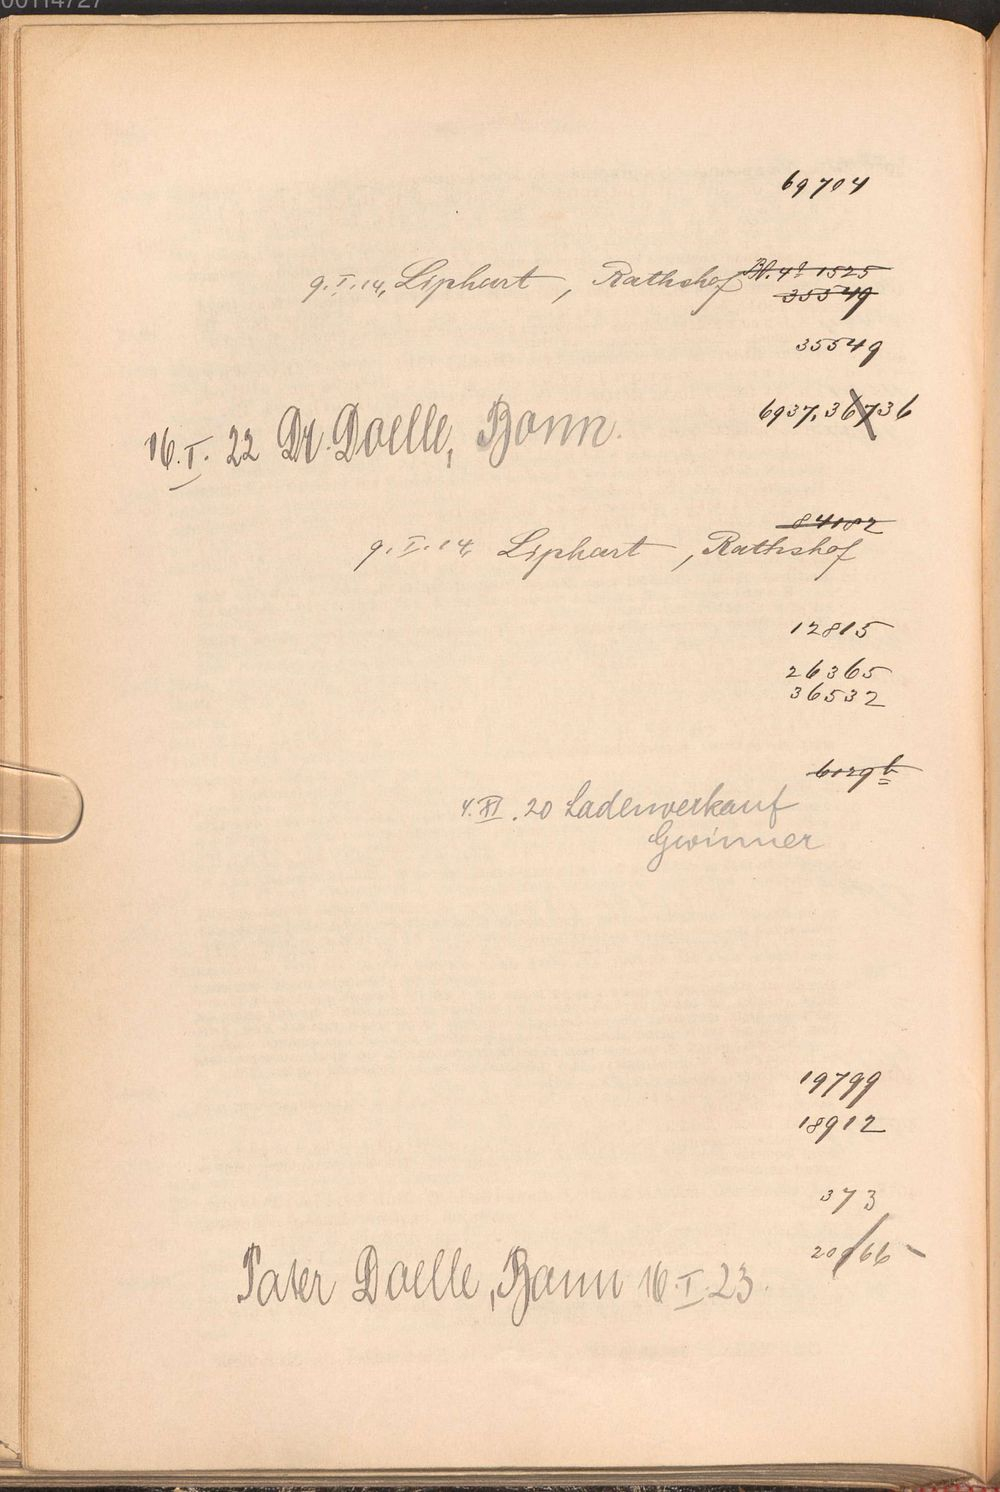 00114727
69704
9.I.14, Liphart, Rathshof Bl. 4° 1525
35549
35549
6937, 36736
16.I.22 Dr. Doelle, Bonn.
84182
9.I.14, Liphart, Rathshof
12815
26365
36532
6029 b
4.XI.20 Ladenverkauf
Gwinner
19799
18912
373
20966
Pater Doelle, Bonn 16.I.23.